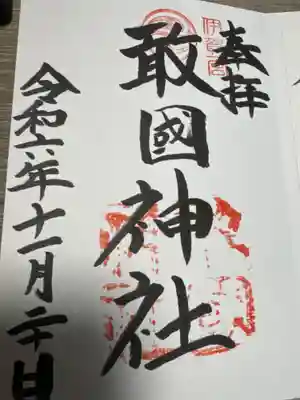 奉拝
伊賀一宮
敢國神社
令和六年十一月二十日